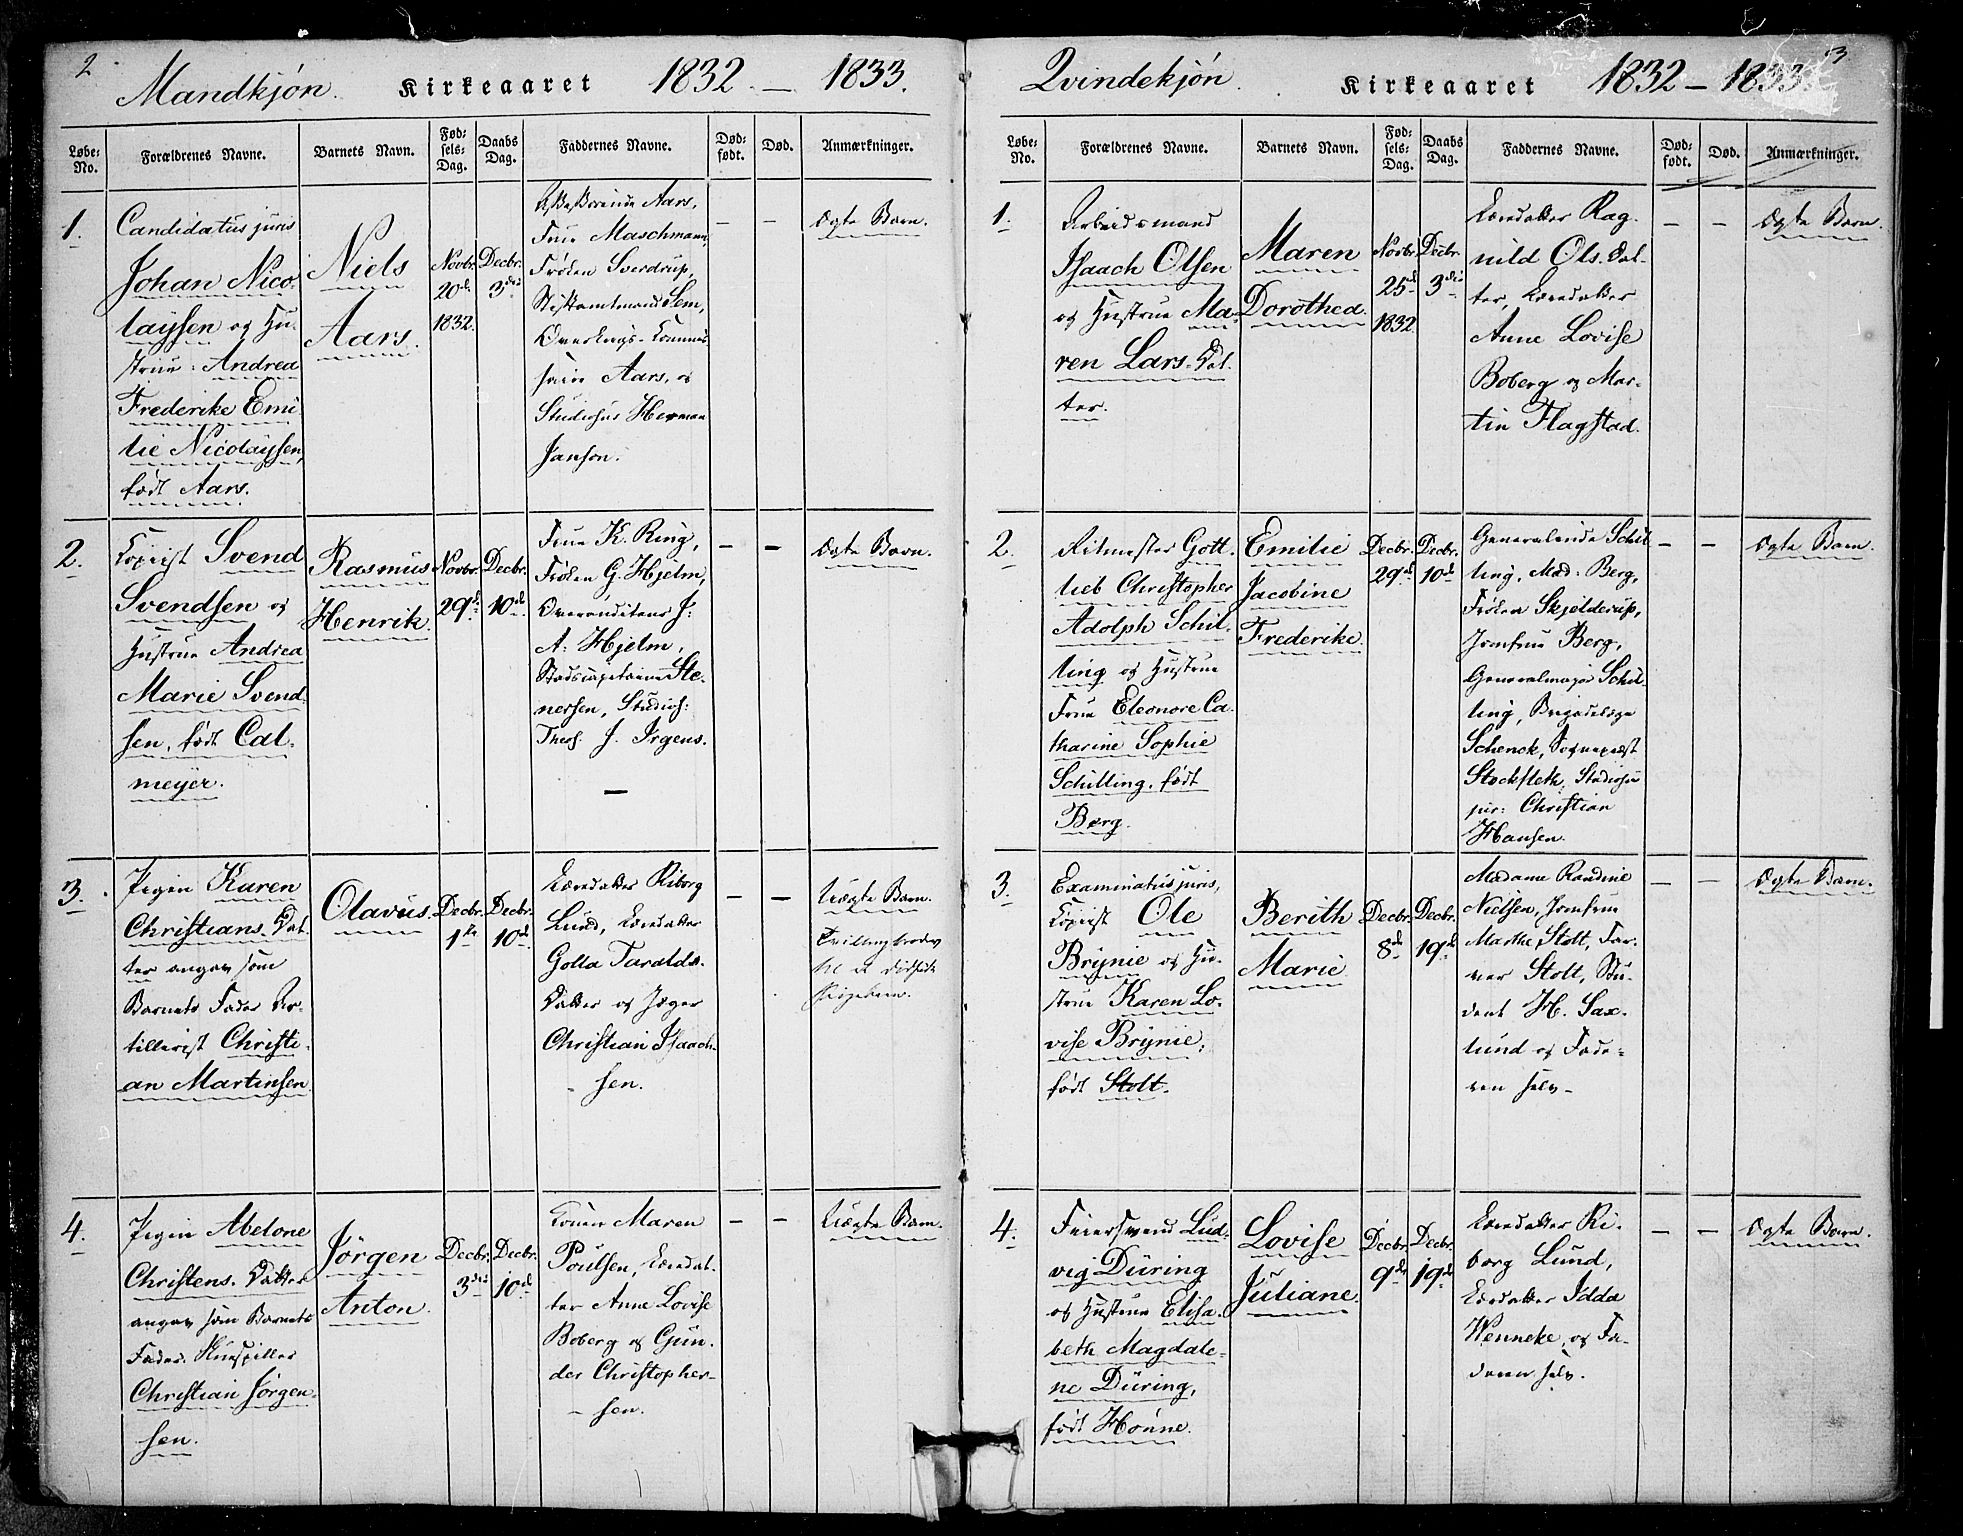 2
Mandkjön. Kirkeaaret 1832 - 1833.
Løbe-No. Forældrenes Navne. Barnets Navn. Fød-sels-Dag. Daabs Dag. Faddernes Navne. Død-født. Død. Anmærkninger.
1.
Candidatus juris
Johan Nico
laÿsen og Hu-
strue Andrea
Frederike Emi
lie Nicolaÿsen,
født Aars.
Niels
Aars.
Novbr.
20de
1832.
Decbr.
3die
Aars,
Frue Maschmann,
Fröken Sverdrup,
Stiftamtmand Sem,
Overkrigs-Commis
sair Aars, og
Studiosus Herman
Janson.
— —
Ægte Barn.
2.
Copiist Svend
Svendsen og
Hustrue Andrea
Marie Svend-
sen, født Cal-
meÿer.
Rasmus
Henrik.
Novbr.
29de
Decbr.
10de
Frue K. Ring,
Fröken G. Hjelm,
Overauditeur J:
A: Hjelm,
Stadscapitaine Ste-
nersen, Studios:
Theol. J. Irgens.
—
— —
Ægte Barn.
3.
Pigen Karen
Christians Dat-
ter angav som
Barnets Fader Ar-
tillerist Christi-
an Martinsen.
Olavus.
Decbr.
1ste
Decbr.
10de
Læredatter Riborg
Lund, Læredatter
Golla Taralds-
Datter og Jæger
Christian Isaach-
sen.
— —
Uægte Barn.
Tvillingbroder
til et dødfødt
Pigebarn.
4.
Pigen Abelone
Christens Datter
angav som Barnets
Fader Skuespiller
Christian Jörgen-
sen.
Jörgen
Anton.
Decbr.
3die
Decbr.
10de
Konen Maren
Poulsen, Læredat-
ter Anne Lovise
Boberg og Gun-
der Christopher-
sen.
— —
Uægte Barn.
3.
Qvindekjön. Kirkeaaret 1832 - 1833.
Løbe-No. Forældrenes Navne. Barnets Navn. Fød-sels-Dag. Daabs Dag. Faddernes Navne. Død-født. Død. Anmærkninger.
1.
Arbeidsmand
Isaach Olsen
og Hustrue Ma-
ren Lars-Dat-
ter.
Maren
Dorothea.
Novbr.
25de
1832.
Decbr.
3die
Læredatter Rag-
nild Ols. Dat-
ter, Læredatter
Anne Lovise
Boberg og Mar-
tin Flagstad.
— —
Ægte Barn.
2.
Ritmester Gott-
lieb Christopher
Adolph Schil-
ling og Hustrue
Frue Eleonore Ca-
tharine Sophie
Schilling, født
Berg.
Emilie
Jacobine
Frederike.
Decbr.
29de
Decbr.
10de
Generalinde Schil
ling, Mad: Berg,
Fröken Skjelderup,
Jomfrue Berg,
Generalmajor Schil-
ling, Brigadelæge
Schenck, Sognepræst
Stockfleth, Studiosus
jur: Christian
Hansen.
— —
Ægte Barn.
3.
Examinatus juris,
Copiist Ole
Brÿnie og Hu-
strue Karen Lo-
vise Brÿnie,
født Stolt.
Berith
Marie
Decbr.
8de
Decbr.
19de
Madame Randine
Nielsen, Jomfrue
Marthe Stolt, Far-
ver Stolt, Stu-
dent H. Sax-
lund og Fade-
ren selv -
— —
Ægte Barn.
4.
Feiersvend Lud-
vig Düring
og Hustrue Elisa-
beth Magdale-
ne Düring,
født Hönne.
Lovise
Juliane.
Decbr.
9de
Decbr.
19de
Læredatter Ri-
borg Lund,
Læredatter Idda
Wenneke, og Fa-
deren selv.
— —
Ægte Barn.